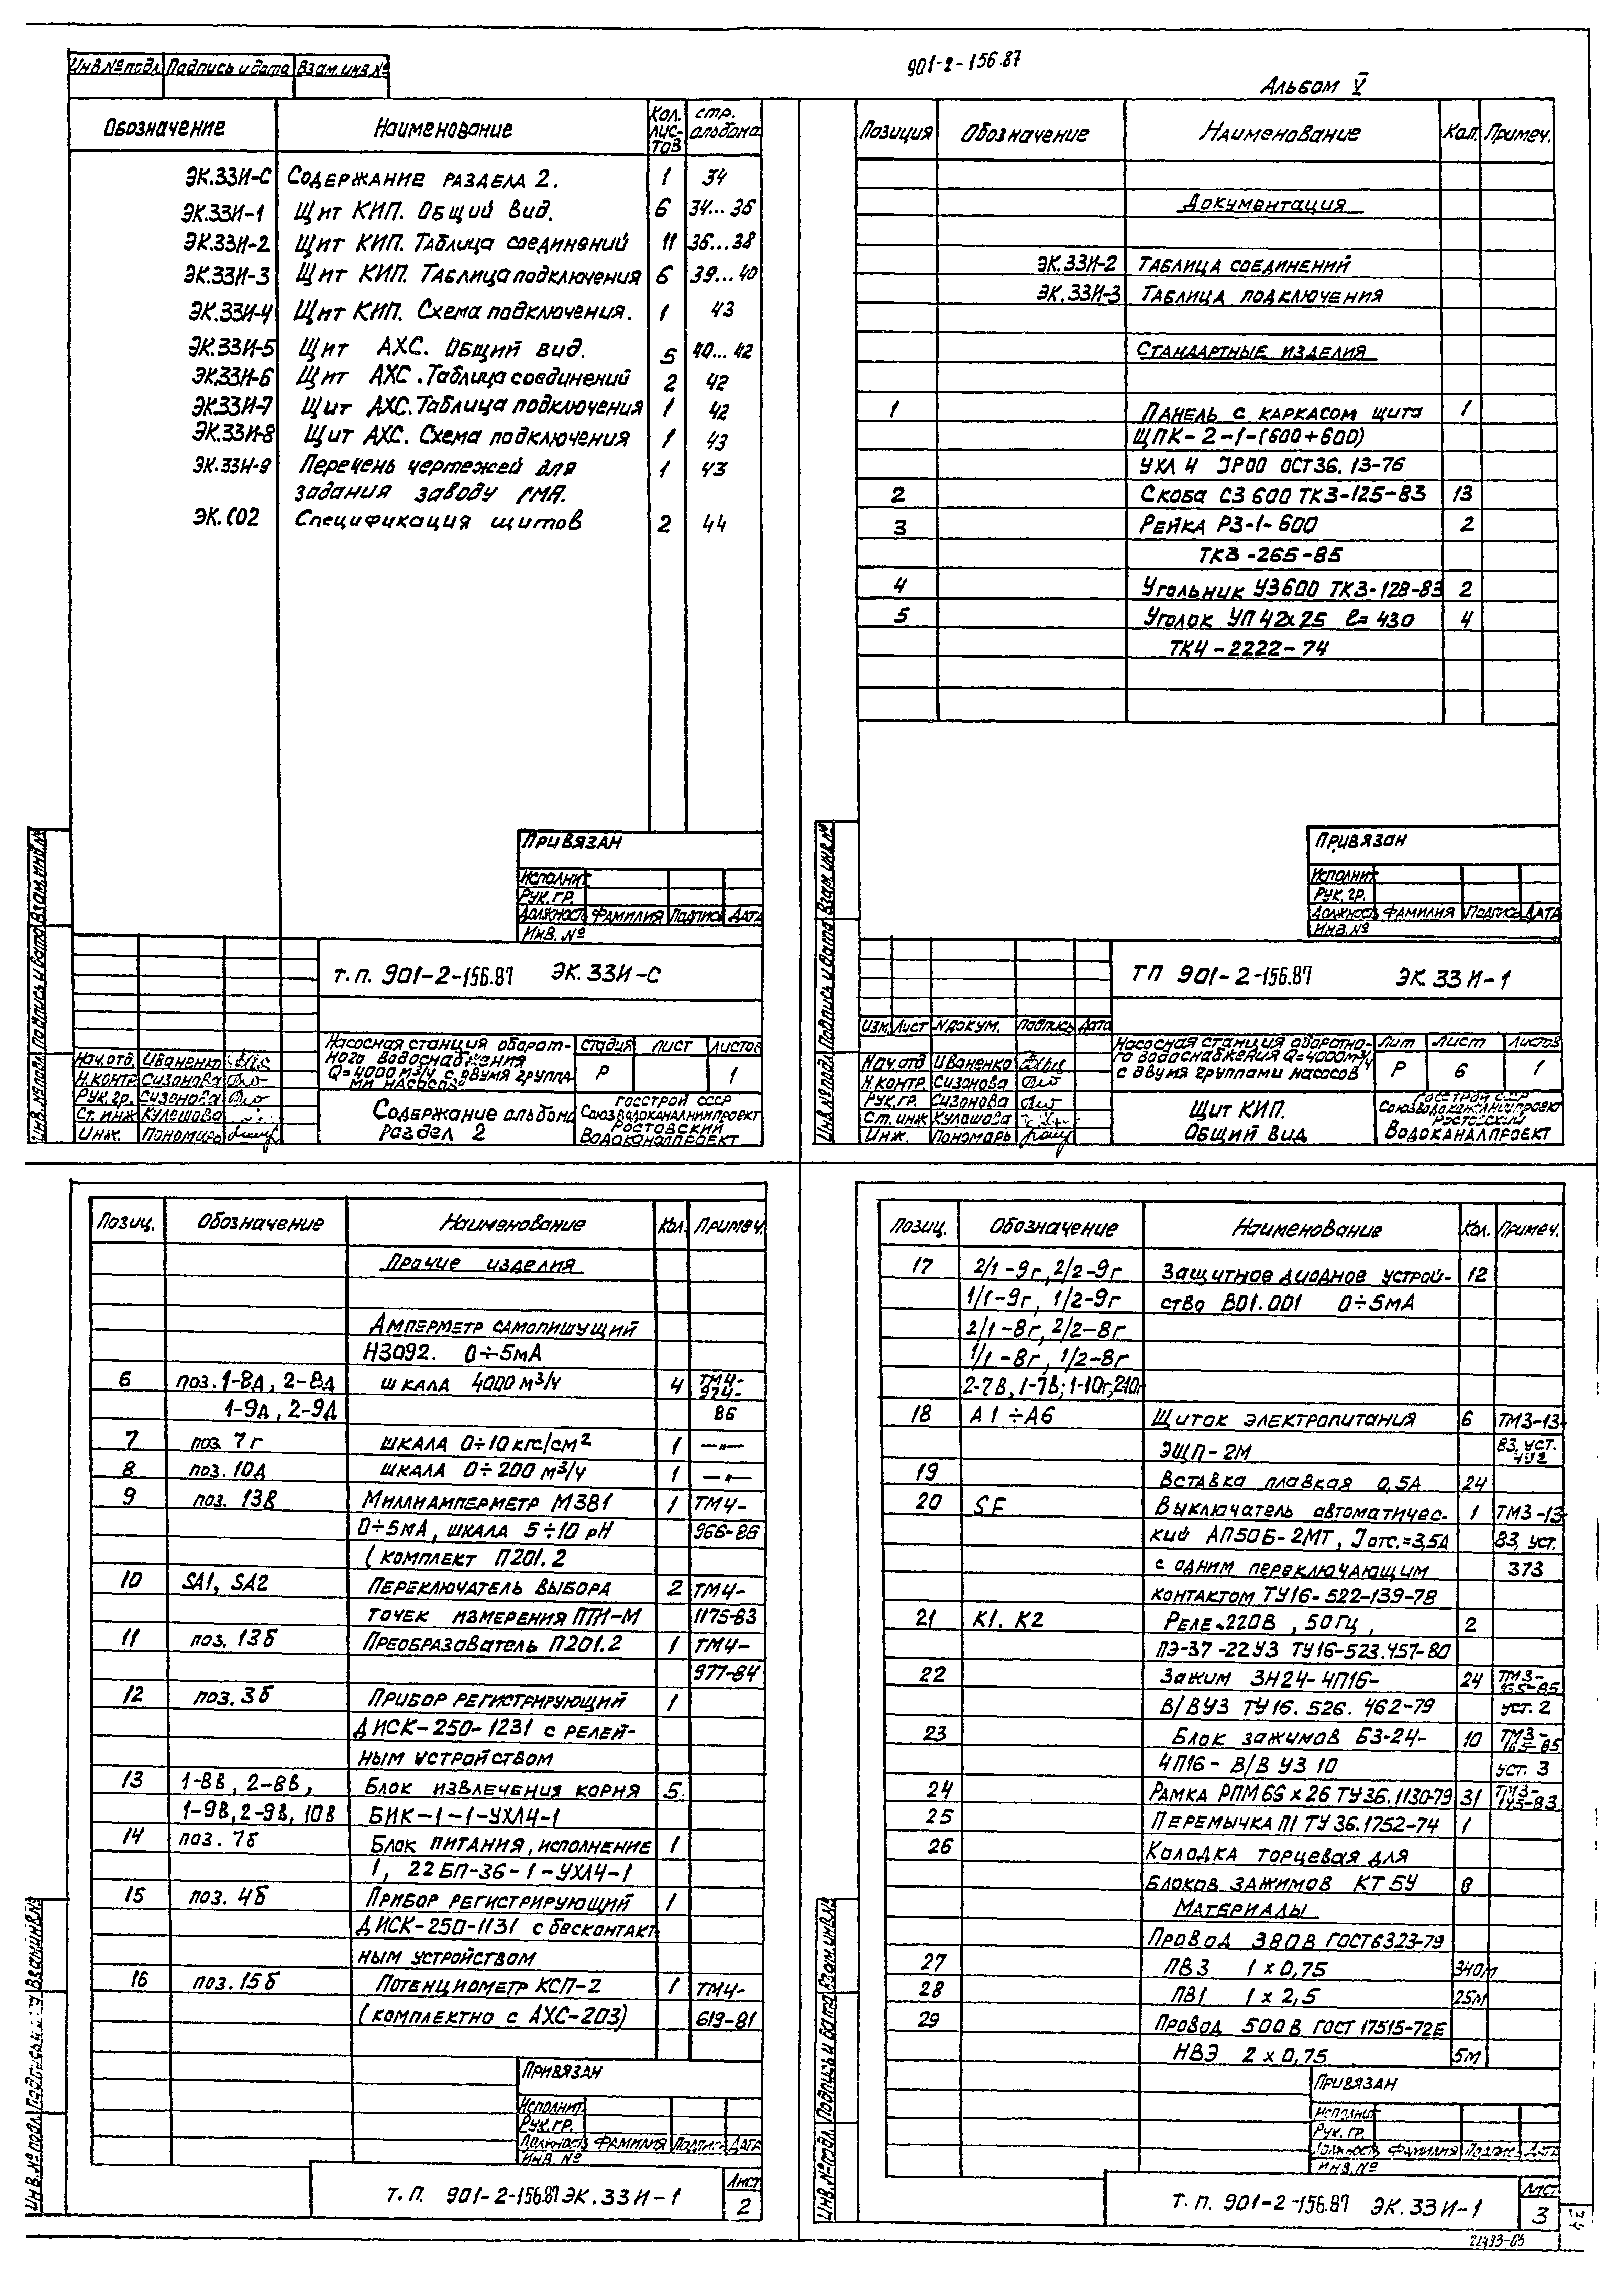 901-2-156.87
Альбом V
Инв.№подл. Подпись и дата Взам.инв.№
Обозначение Наименование Кол. лис-тов стр. альбома
ЭК.33И-С Содержание раздела 2. 1 34
ЭК.33И-1 Щит КИП. Общий вид. 6 34...36
ЭК.33И-2 Щит КИП. Таблица соединений 11 36...38
ЭК.33И-3 Щит КИП. Таблица подключения 6 39...40
ЭК.33И-4 Щит КИП. Схема подключения. 1 43
ЭК.33И-5 Щит АХС. Общий вид. 5 40...42
ЭК.33И-6 Щит АХС. Таблица соединений 2 42
ЭК.33И-7 Щит АХС. Таблица подключения 1 42
ЭК.33И-8 Щит АХС. Схема подключения 1 43
ЭК.33И-9 Перечень чертежей для 1 43
задания заводу ГМА.
ЭК.СО2 Спецификация щитов 2 44
Привязан
Исполнит.
Рук.гр.
Должность Фамилия Подпись Дата
Инв.№
т.п. 901-2-156.87 ЭК.33И-С
Насосная станция оборот-
ного водоснабжения
Q=4000 м³/ч с двумя группа-
ми насосов
Стадия Лист Листов
Р 1
Нач.отд. Иваненко
Н.контр. Сизонова
Рук.гр. Сизонова
Ст.инж Кулешова
Инж. Пономарь
Содержание альбома
Раздел 2
Госстрой СССР
Союзводоканалниипроект
Ростовский
Водоканалпроект
Инв.№подл. Подпись и дата Взам.инв.№
Позиция Обозначение Наименование Кол. Примеч.
Документация
ЭК.33И-2 Таблица соединений
ЭК.33И-3 Таблица подключения
Стандартные изделия
1 Панель с каркасом щита 1
ЩПК-2-1-(600+600)
УХЛ 4 JP00 ОСТ36.13-76
2 Скоба С3 600 ТК3-125-83 13
3 Рейка Р3-1-600 2
ТК3-265-85
4 Угольник У3600 ТК3-128-83 2
5 Уголок УП 42х25 ℓ=430 4
ТК4-2222-74
Привязан
Исполнит
Рук.гр.
Должность Фамилия Подпись Дата
Инв.№
ТП 901-2-156.87 ЭК.33И-1
Изм. Лист №докум. Подпись Дата
Насосная станция оборотно-
го водоснабжения Q=4000м³/ч
с двумя группами насосов
Лит Лист Листов
Р 6 1
Нач.отд Иваненко
Н.контр. Сизонова
Рук.гр. Сизонова
Ст.инж Кулешова
Инж. Пономарь
Щит КИП.
Общий вид
Госстрой СССР
Союзводоканалниипроект
Ростовский
Водоканалпроект
Инв.№подл. Подпись и дата Взам.инв.№
Позиц. Обозначение Наименование Кол. Примеч.
Прочие изделия
Амперметр самопишущий
Н3092. 0÷5мА
6 поз.1-8д, 2-8д шкала 4000 м³/ч 4 ТМ4-974-
1-9д, 2-9д 86
7 поз. 7г шкала 0÷10 кгс/см² 1 —"—
8 поз. 10д шкала 0÷200 м³/ч 1 —"—
9 поз. 13в Миллиамперметр М381 1 ТМ4-
0÷5мА, шкала 5÷10 рН 966-86
(комплект П201.2
10 SA1, SA2 Переключатель выбора 2 ТМ4-
точек измерения ПТИ-М 1175-83
11 поз. 13б Преобразователь П201.2 1 ТМ4-
977-84
12 поз. 3б Прибор регистрирующий 1
ДИСК-250-1231 с релей-
ным устройством
13 1-8в, 2-8в, Блок извлечения корня 5
1-9в, 2-9в, 10в БИК-1-1-УХЛ4-1
14 поз. 7б Блок питания, исполнение 1
1, 22БП-36-1-УХЛ4-1
15 поз. 4б Прибор регистрирующий 1
ДИСК-250-1131 с бесконтакт-
ным устройством
16 поз. 15б Потенциометр КСП-2 1 ТМ4-
(комплектно с АХС-203) 619-81
Привязан
Исполнит.
Рук.гр.
Должность Фамилия Подпись Дата
Инв.№
Т.П. 901-2-156.87 ЭК.33И-1
Лист
2
Инв.№подл. Подпись и дата Взам.инв.№
Позиц. Обозначение Наименование Кол. Примеч.
17 2/1-9г, 2/2-9г Защитное диодное устрой- 12
1/1-9г, 1/2-9г ство В01.001 0÷5мА
2/1-8г, 2/2-8г
1/1-8г, 1/2-8г
2-7в, 1-7в; 1-10г, 2-10г
18 А1÷А6 Щиток электропитания 6 ТМ3-13-
ЭЩП-2М 83, уст. 492
19 Вставка плавкая 0,5А 24
20 SF Выключатель автоматичес- 1 ТМ3-13-
кий АП50Б-2МТ, Jотс.=3,5А 83, уст.
с одним переключающим 373
контактом ТУ16-522-139-78
21 К1. К2 Реле ~220В, 50Гц, 2
ПЭ-37-22У3 ТУ16-523.457-80
22 Зажим ЗН24-4П16- 24 ТМ3-165-85
В/ВУ3 ТУ16.526.462-79 уст. 2
23 Блок зажимов Б3-24- 10 ТМ3-165-85
4П16-В/В У3 10 уст. 3
24 Рамка РПМ 66×26 ТУ36.1130-79 31 ТМ3-145-83
25 Перемычка П1 ТУ36.1752-74 1
26 Колодка торцевая для
блоков зажимов КТ5У 8
Материалы
Провод 380В ГОСТ6323-79
27 ПВ3 1×0,75 340м
28 ПВ1 1×2,5 25м
29 Провод 500В ГОСТ 17515-72Е
НВЭ 2×0,75 5м
Привязан
Исполнит
Рук.гр.
Должность Фамилия Подпись Дата
Инв.№
Т.П. 901-2-156.87 ЭК.33И-1
Лист
3
34
Инв.№подл. Подпись и дата Взам.инв.№
22493-05